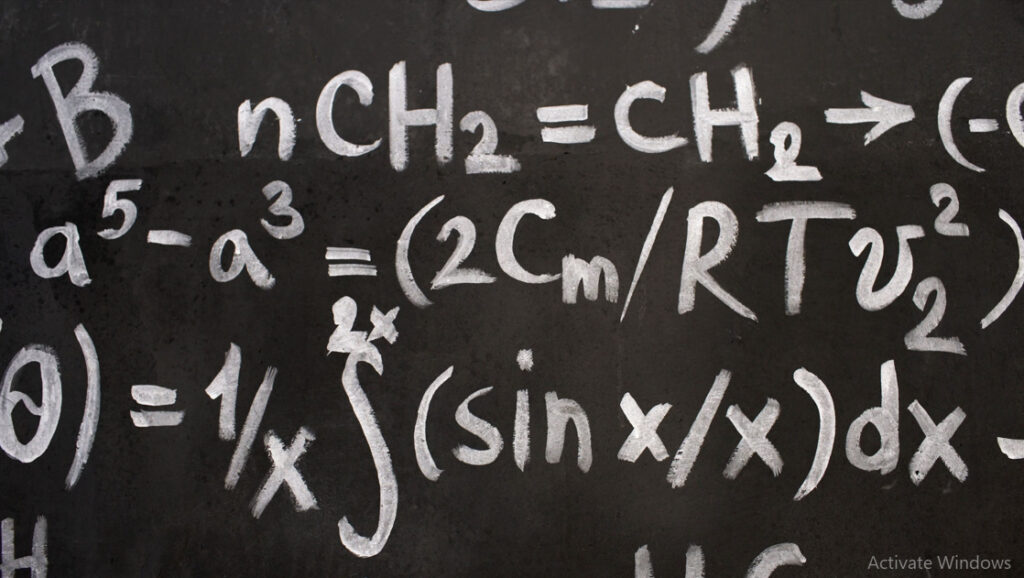 B nCH₂ = CH₂ → (-
a⁵ - a³ = (2Cm/RTv₂²)
θ) = 1/x ∫²ˣ (sin x/x)dx -
H
Activate Windows